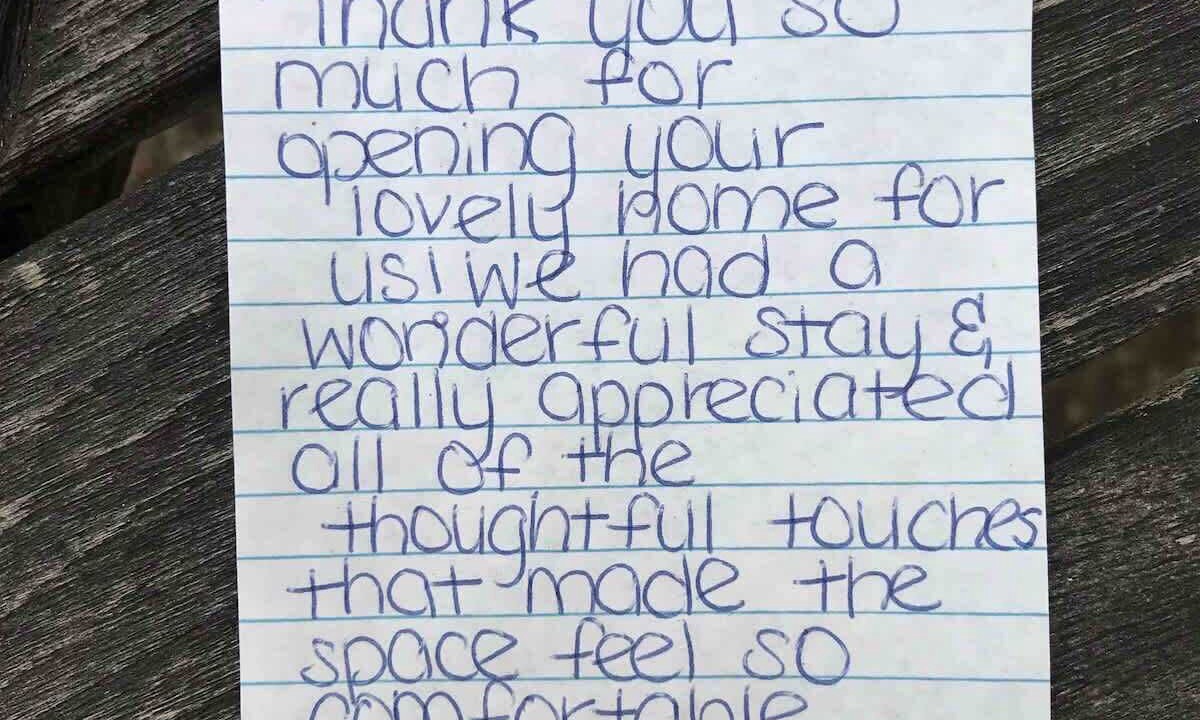 Thank you so
much for
opening your
lovely home for
us! We had a
wonderful stay &
really appreciated
all of the
thoughtful touches
that made the
space feel so
comfortable